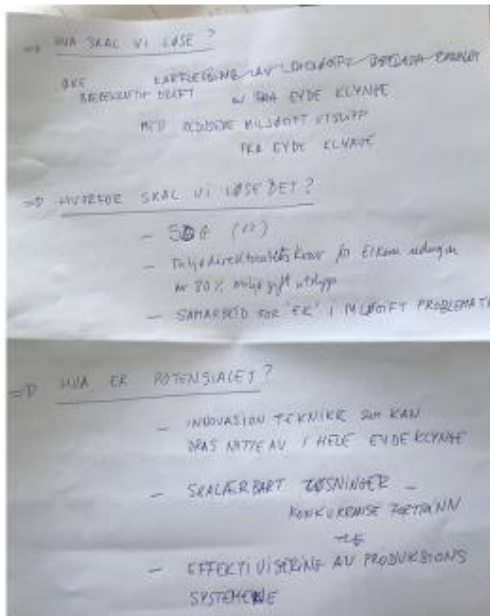 => HVA SKAL VI LØSE?
ØKE KARTLEGGING AV
BÆREKRAFTIG DRIFT AV FRA EYDE KLYNGE
MED REDUSERE MILJØGIFT UTSLIPP
FRA EYDE KLYNGE
=> HVORFOR SKAL VI LØSE DET?
- SDG (12)
- Miljødirektoratets krav for Elkem
av 80% miljøgift utslipp
- SAMARBEID FOR 'EK' I MILJØGIFT PROBLEMATI
=> HVA ER POTENSIALET?
- INNOVASION TEKNIKK SOM KAN
DRAS NYTTE AV I HELE EYDE KLYNGE
- SKALÆRBART LØSNINGER -
KONKURRANSE FORTRINN
- EFFEKTIVISERING AV PRODUKSJONS
SYSTEMENE